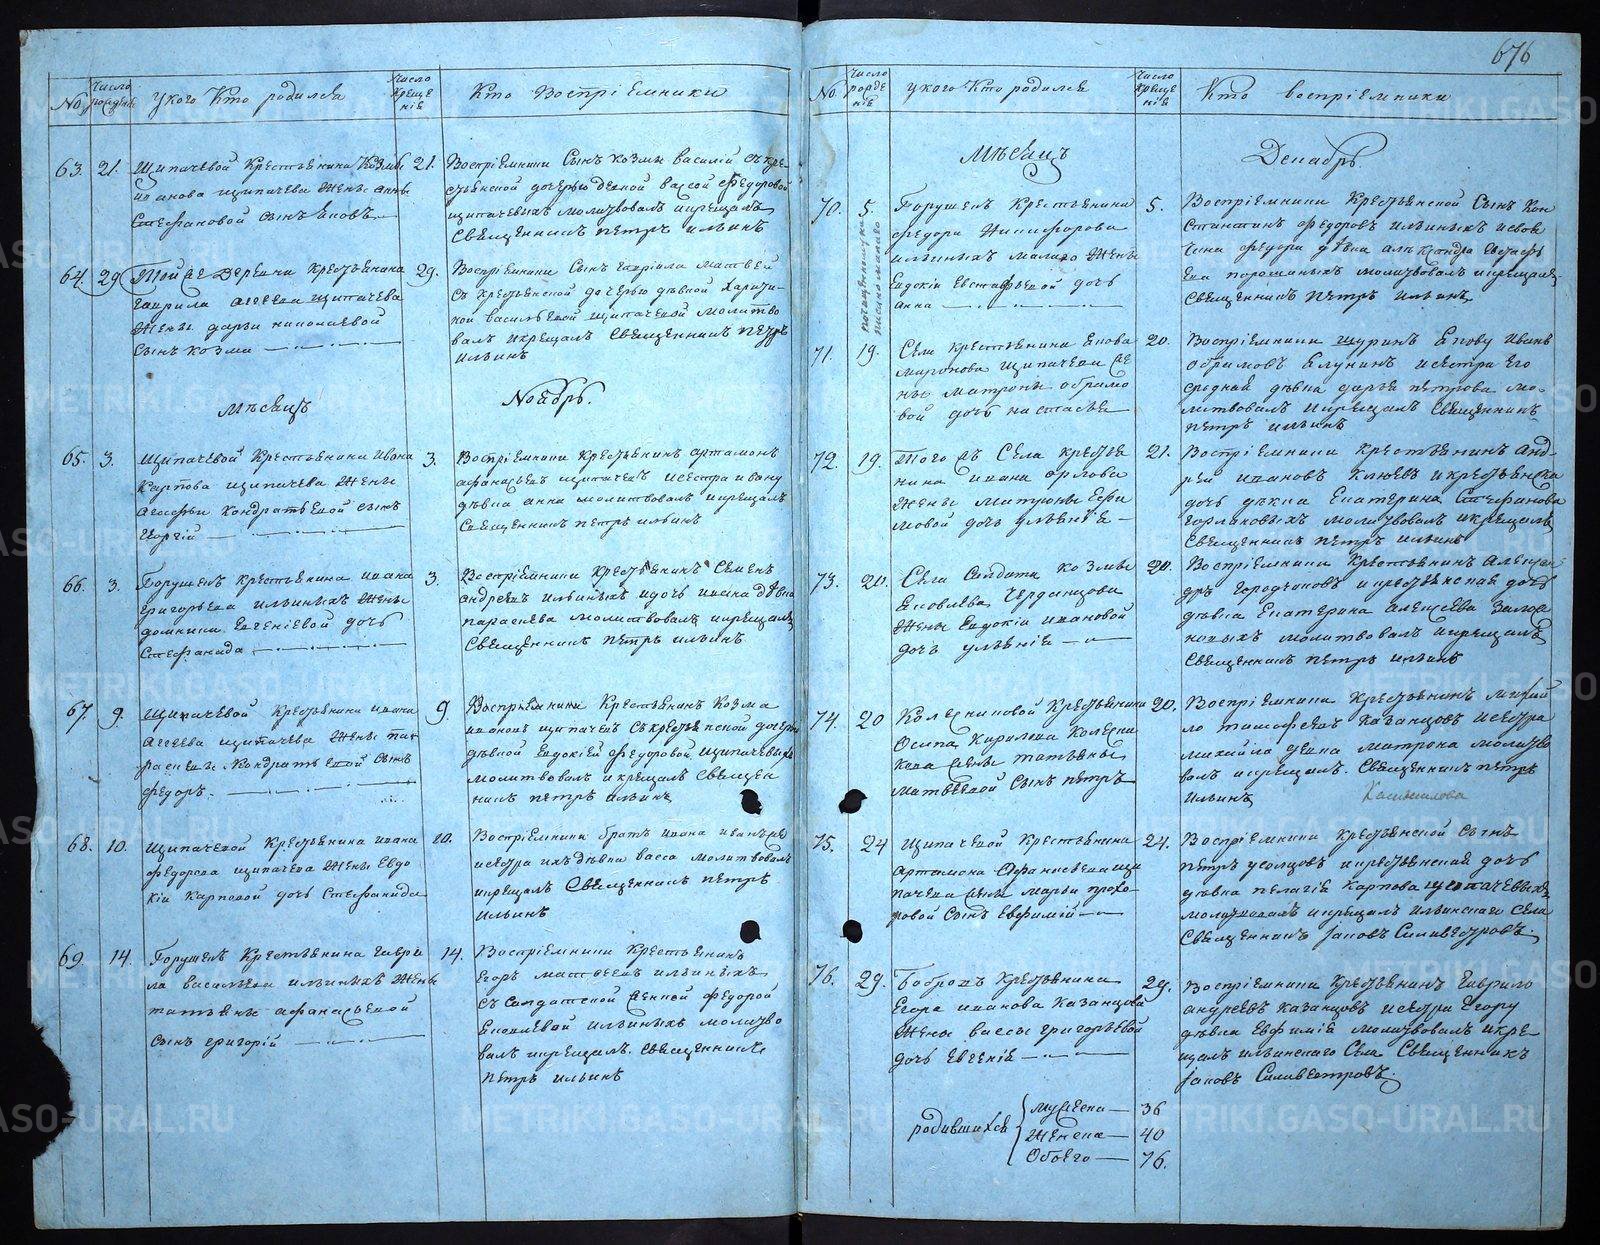 №
Число рождения
У кого Кто родился
Число крещенія
Кто Воспріемники
63. 21. Щипачевой Крестьянина Козмы 21.
Иванова щипачева Жены Анны
Стефановой сынъ Яковъ
Воспріемники Сынъ козмы василій съ кре-
стьянской дочерью девкой вассой Федоровой
щипачевыхъ молитвовалъ и крещалъ
Священникъ петръ ильинъ
64. 29 Той же Деревни крестьянина 29.
гаврила агеева щипачева
Жены дарьи николаевой
сынъ козма
Воспріемники Сынъ гавріила матвей
съ крестьянской дочерью девкой Харити-
ной васильевой щипачевой молитво
валъ и крещалъ Священникъ петръ
ильинъ
Мѣсяцъ Ноябрь.
65. 3. Щипачевой Крестьянина Ивана 3.
Карпова щипачева Жены
Агафьи Кондратьевой сынъ
Георгій
Воспріемники крестьянинъ артамонъ
афанасьевъ щипачевъ и сестра ивану
дѣвка анна молитвовалъ и крещалъ
Священникъ петръ ильинъ
66. 3. Борушекъ крестьянина ивана 3.
григорьева ильиныхъ Жены
домники Евгеніевой дочь
Стефанида
Воспріемники крестьянинъ Семенъ
андреевъ ильиныхъ и дочь ивана дѣвка
параскева молитвовалъ и крещалъ
Священникъ петръ ильинъ
67. 9. Щипачевой Крестьянина ивана 9.
Агеева щипачева Жены па-
раскевы Кондратьевой сынъ
федоръ.
Воспріемники Крестьянинъ Козма
ивановъ щипачевъ съ крестьянской дочерью
дѣвкой Евдокіей федоровой щипачевыхъ
молитвовалъ и крещалъ Священ
никъ петръ ильинъ
68. 10. щипачевой Крестьянина ивана 10.
федорова щипачева Жены Евдо
кіи Карповой дочь Стефанида
Воспріемники братъ ивана
и сестра ихъ дѣвки васса молитвовалъ
и крещалъ Священникъ петръ
ильинъ
69. 14. Борушекъ Крестьянина гаври 14.
ла васильева ильиныхъ Жены
татьяны афанасьевой
сынъ григорій
Воспріемники Крестьянинъ
Егоръ матфеевъ ильиныхъ
съ Солдатской Женкой федорой
Яковлевой ильиныхъ молитво
валъ и крещалъ. Священникъ
петръ ильинъ
676
№
Число рожденія
у кого Кто родился
Число Крещенія
Кто воспріемники
Мѣсяцъ Декабрь
70. 5. Борушекъ Крестьянина 5.
федора Никифорова
ильиныхъ Жены
Евдокіи Евстафьевой дочь
анна
Воспріемники Крестьянской Сынъ Кон
стантинъ федоровъ ильиныхъ
федора дѣвка александра Евстафь
ева молитвовалъ и крещалъ
Священникъ петръ ильинъ
71. 19. Села крестьянина Якова 20.
миронова щипачева же
ны матроны
вой дочь настасья
Воспріемники шуринъ Якову иванъ
Елунинъ и сестра его
средняя дѣвка дарья петрова мо-
литвовалъ и крещалъ Священникъ
петръ ильинъ
72. 19. Того жъ Села крестья 21.
нина ивана орлова
Жены матроны Ефи
мовой дочь ульянія
Воспріемники Крестьянинъ Анд-
рей ивановъ Клюевъ и крестьянска
дочь дѣвка Екатерина Стефанова
горьковыхъ молитвовалъ и крещалъ
Священникъ петръ ильинъ
73. 20. Села Солдата козмы 20.
Яковлева Черданцова
Жены Евдокіи ивановой
дочь ульянія
Воспріемники Крестьянинъ Алексан
дръ и крестьянская дочь
дѣвка Екатерина алексеева
молитвовалъ и крещалъ
Священникъ петръ ильинъ
74. 20 Колясниковой Крестьянина 20.
Осипа Кирилова Колясни
кова Жены татьяны
матвеевой сынъ петръ
Воспріемники Крестьянинъ михай
ло Казанцовъ и сестра
михайла девка матрона молитво
валъ и крещалъ. Священникъ петръ
ильинъ
75. 24 Щипачевой Крестьянина 24.
Артамона Афанасьева щи
пачева Жены марьи прохо-
ровой Сынъ Евфимій
Воспріемники крестьянской Сынъ
петръ и крестьянская дочь
дѣвка пелагія карпова щипачевыхъ
молитвовалъ и крещалъ ильинскаго села
Священникъ Іаковъ Силивестровъ.
76. 29. Боброва крестьянина 29.
Егора иванова Казанцова
Жены вассы григорьевой
дочь Евгенія
Воспріемники крестьянинъ Гаврило
андреевъ Казанцовъ и сестра Егору
дѣвка Евфимія молитвовалъ и кре-
щалъ ильинскаго Села Священникъ
Іаковъ Силивестровъ.
родившихся
мужеска — 36
Женска — 40
Обоего — 76.
METRIKI.GASO-URAL.RU